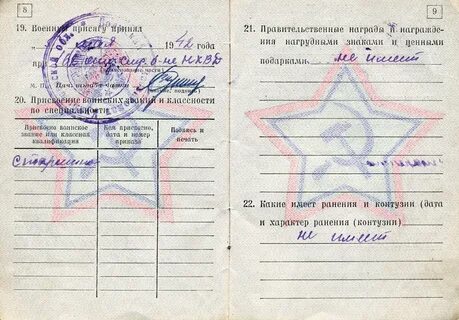 8
19. Военную присягу принял
мая 1942 года
при 
М. П.
20. Присвоение воинских званий и классности
по специальности
Присвоено воинское
звание или классная
квалификация
Кем присвоено,
дата и номер
приказа
Подпись и
печать
Старшина
9
21. Правительственные награды и награждения
нагрудными знаками и ценными
подарками. не имеет
22. Какие имеет ранения и контузии (дата
и характер ранения (контузии)
не имеет